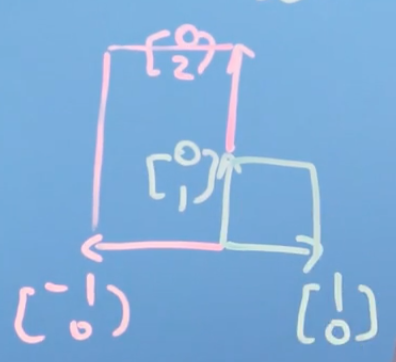 [0
2)
[0
1)
[-1
0)
[1
0]